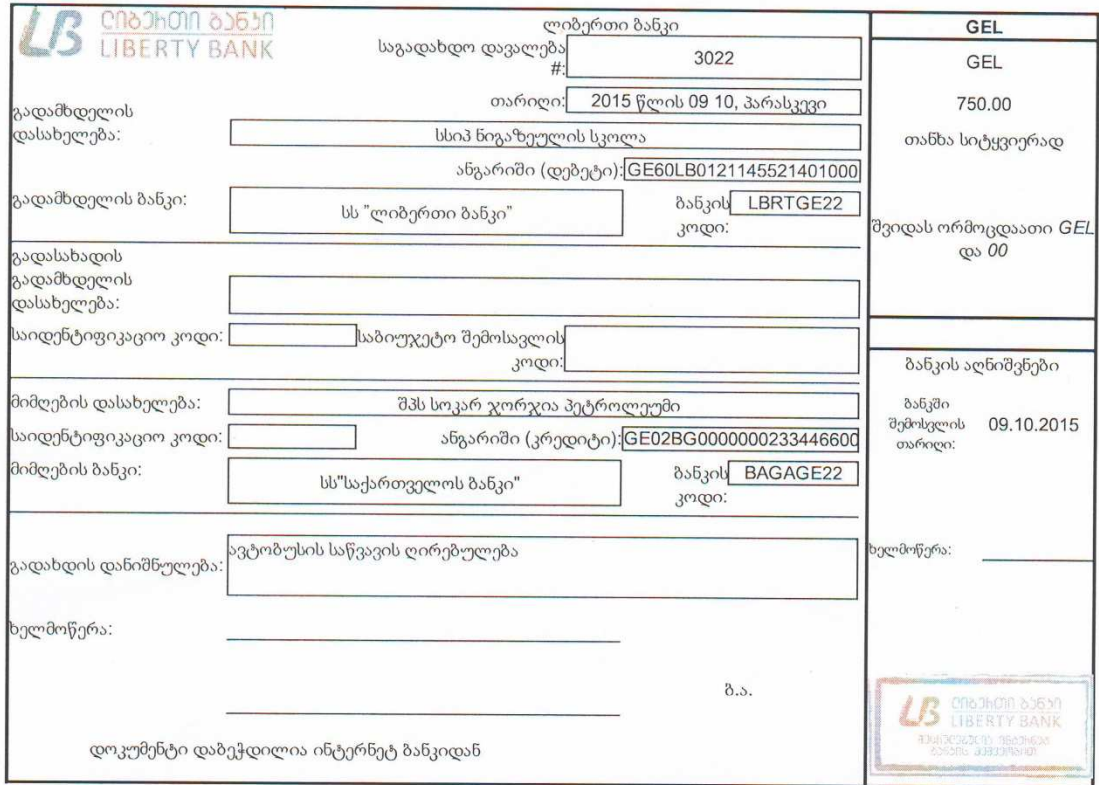 ლიბერთი ბანკი
LIBERTY BANK
ლიბერთი ბანკი
საგადახდო დავალება #: 3022
თარიღი: 2015 წლის 09 10, პარასკევი
გადამხდელის დასახელება: სსიპ ნიგაზეულის სკოლა
ანგარიში (დებეტი): GE60LB0121145521401000
გადამხდელის ბანკი: სს "ლიბერთი ბანკი"
ბანკის კოდი: LBRTGE22
გადასახადის
გადამხდელის
დასახელება:
საიდენტიფიკაციო კოდი:
საბიუჯეტო შემოსავლის
კოდი:
მიმღების დასახელება: შპს სოკარ ჯორჯია პეტროლეუმი
საიდენტიფიკაციო კოდი:
ანგარიში (კრედიტი): GE02BG0000000233446600
მიმღების ბანკი: სს"საქართველოს ბანკი"
ბანკის კოდი: BAGAGE22
გადახდის დანიშნულება: ავტობუსის საწვავის ღირებულება
ხელმოწერა:
ბ.ა.
დოკუმენტი დაბეჭდილია ინტერნეტ ბანკიდან
GEL
GEL
750.00
თანხა სიტყვიერად
შვიდას ორმოცდაათი GEL
და 00
ბანკის აღნიშვნები
ბანკში
შემოსვლის
თარიღი: 09.10.2015
ხელმოწერა:
ლიბერთი ბანკი
LIBERTY BANK